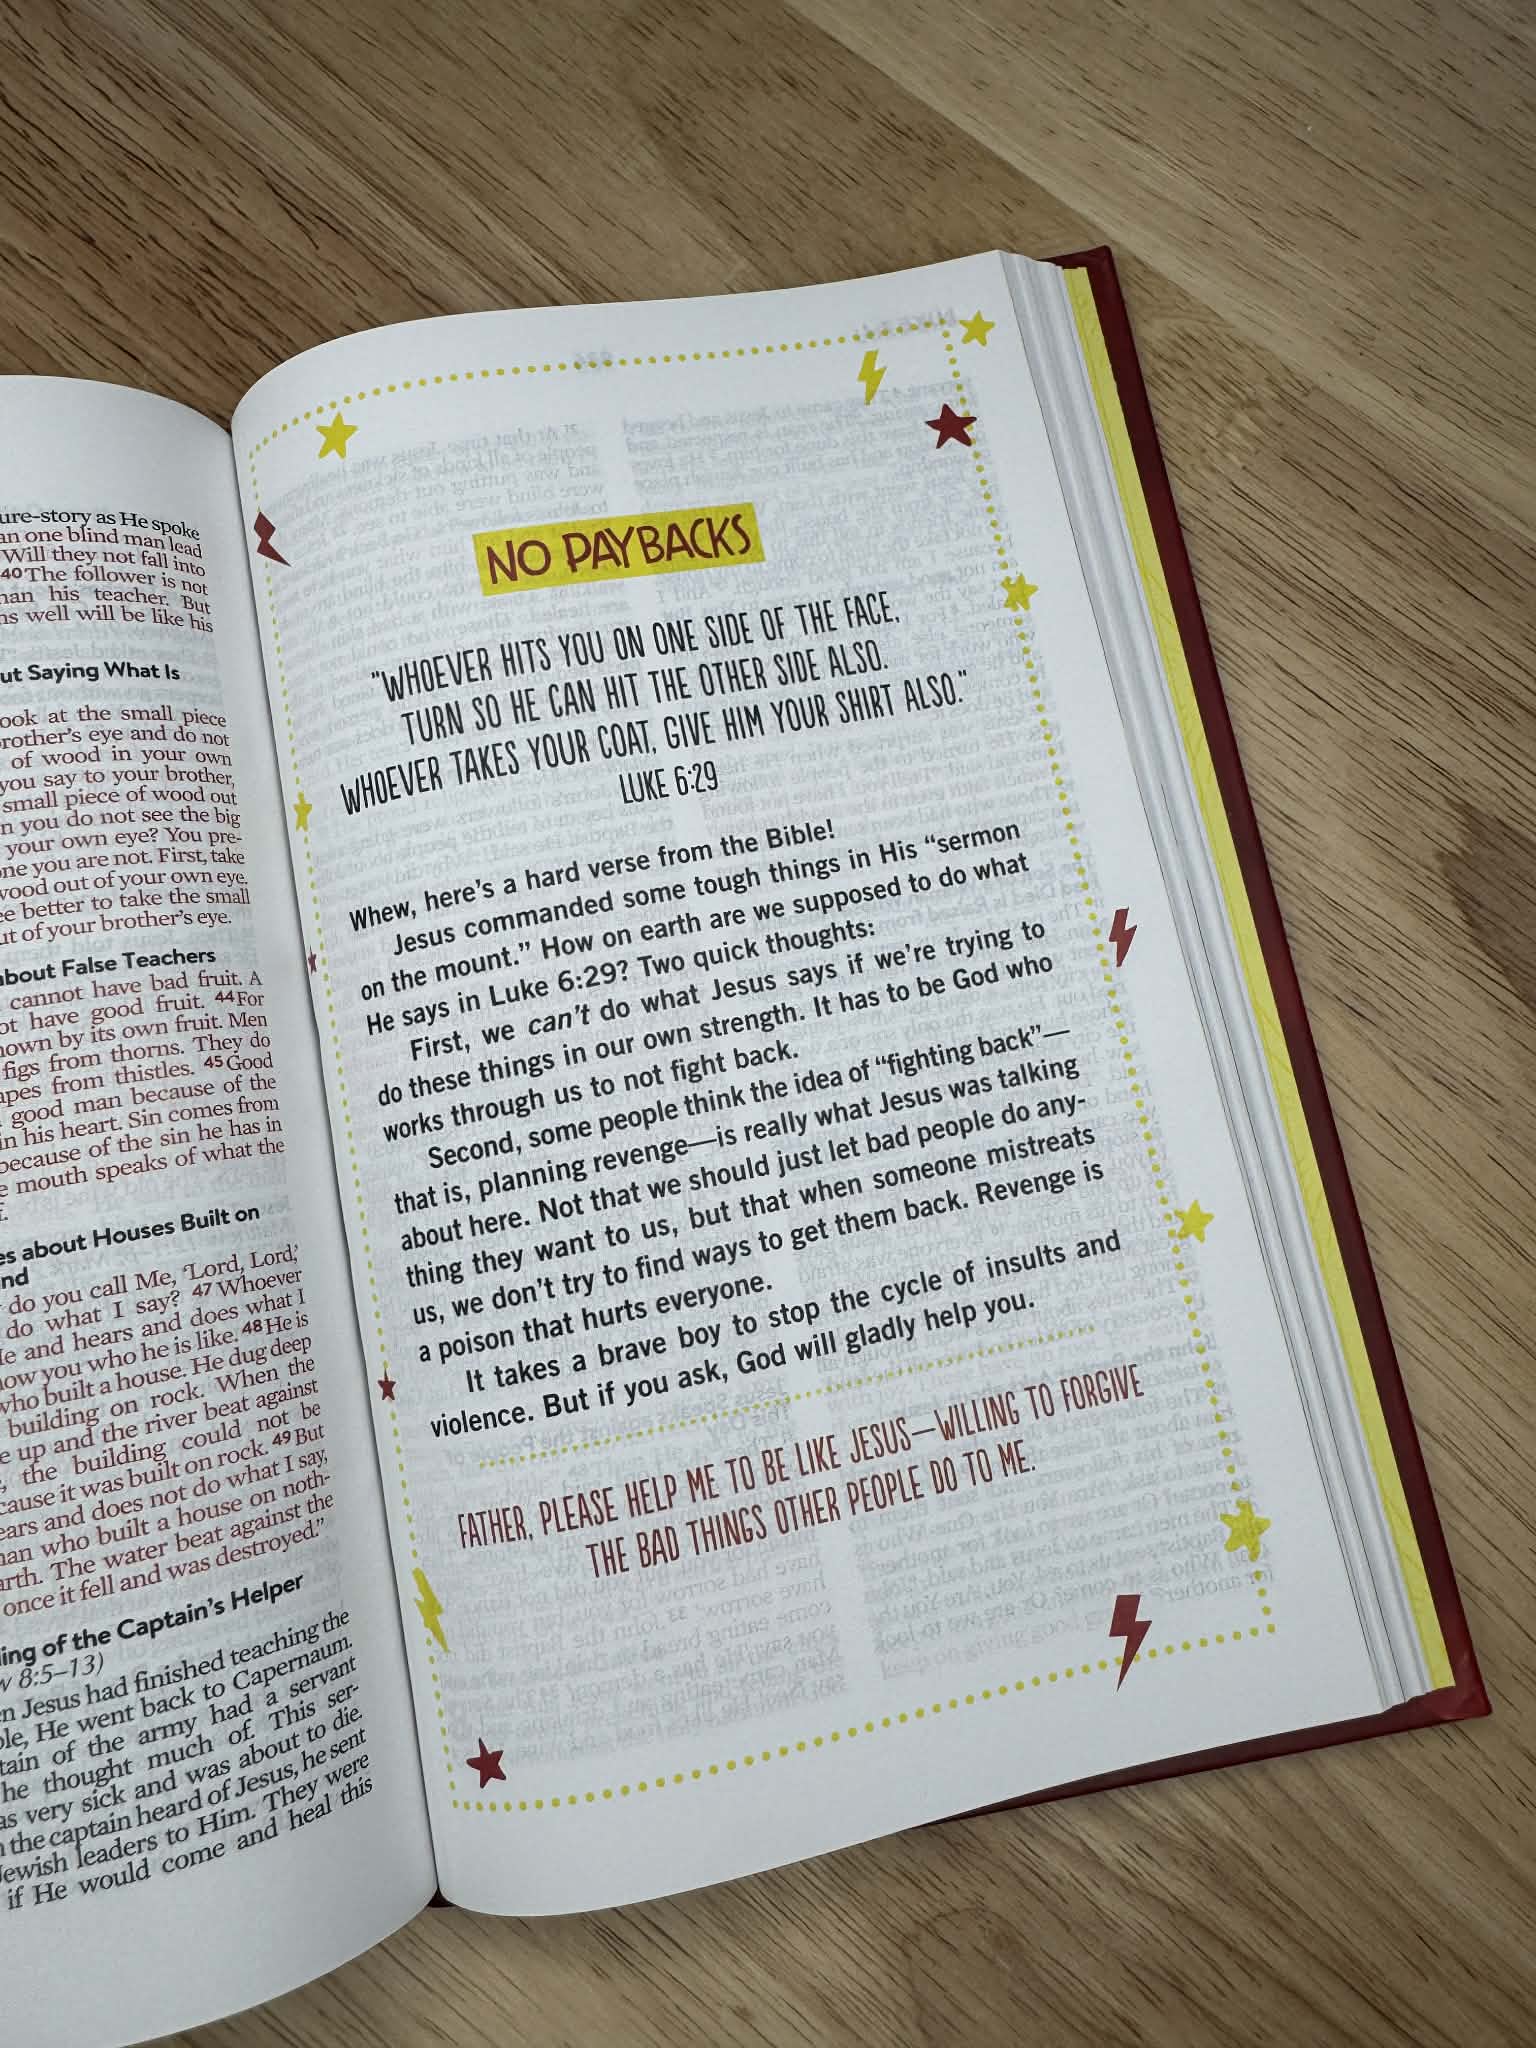 ure-story as He spoke
an one blind man lead
Will they not fall into
40 The follower is not
his teacher. But
well will be like his
ut Saying What Is
ook at the small piece
brother's eye and do not
of wood in your own
you say to your brother,
small piece of wood out
n you do not see the big
your own eye? You pre-
one you are not. First, take
wood out of your own eye.
ee better to take the small
ut of your brother's eye.
about False Teachers
cannot have bad fruit. A
ot have good fruit. 44 For
nown by its own fruit. Men
figs from thorns. They do
apes from thistles. 45 Good
good man because of the
in his heart. Sin comes from
because of the sin he has in
e mouth speaks of what the
f.
es about Houses Built on
nd
do you call Me, 'Lord, Lord,'
do what I say? 47 Whoever
Me and hears and does what I
how you who he is like. 48 He is
who built a house. He dug deep
building on rock. When the
e up and the river beat against
, the building could not be
cause it was built on rock. 49 But
ears and does not do what I say,
man who built a house on noth-
arth. The water beat against the
once it fell and was destroyed."
ling of the Captain's Helper
w 8:5–13)
en Jesus had finished teaching the
ple, He went back to Capernaum.
tain of the army had a servant
he thought much of. This ser-
as very sick and was about to die.
n the captain heard of Jesus, he sent
Jewish leaders to Him. They were
if He would come and heal this
NO PAYBACKS
"WHOEVER HITS YOU ON ONE SIDE OF THE FACE,
TURN SO HE CAN HIT THE OTHER SIDE ALSO.
WHOEVER TAKES YOUR COAT, GIVE HIM YOUR SHIRT ALSO."
LUKE 6:29
Whew, here's a hard verse from the Bible!
Jesus commanded some tough things in His "sermon
on the mount." How on earth are we supposed to do what
He says in Luke 6:29? Two quick thoughts:
First, we can't do what Jesus says if we're trying to
do these things in our own strength. It has to be God who
works through us to not fight back.
Second, some people think the idea of "fighting back"—
that is, planning revenge—is really what Jesus was talking
about here. Not that we should just let bad people do any-
thing they want to us, but that when someone mistreats
us, we don't try to find ways to get them back. Revenge is
a poison that hurts everyone.
It takes a brave boy to stop the cycle of insults and
violence. But if you ask, God will gladly help you.
FATHER, PLEASE HELP ME TO BE LIKE JESUS—WILLING TO FORGIVE
THE BAD THINGS OTHER PEOPLE DO TO ME.